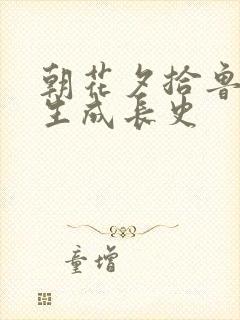 朝花夕拾鲁
生成长史
童增